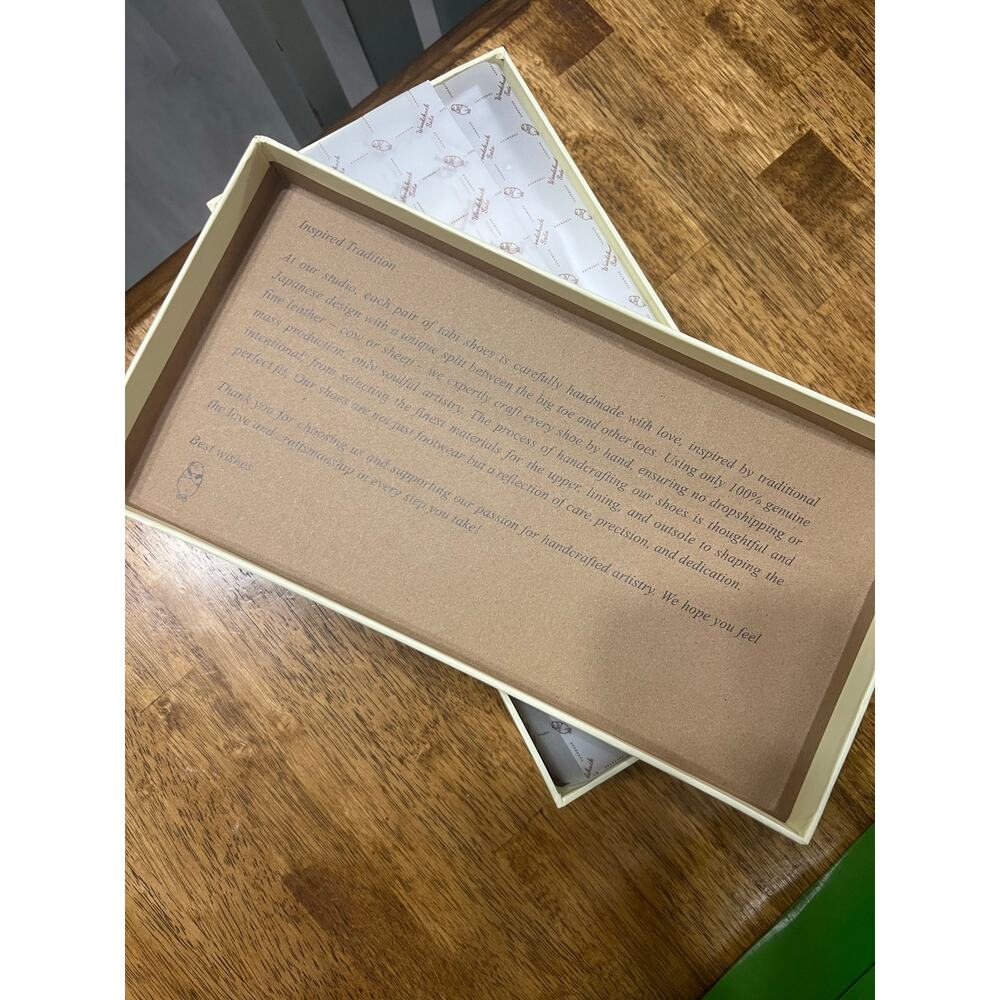 Inspired Tradition
At our studio, each pair of tabi shoes is carefully handmade with love, inspired by traditional
Japanese design with a unique split between the big toe and other toes. Using only 100% genuine
fine leather – cow or sheep – we expertly craft every shoe by hand, ensuring no dropshipping or
mass production, only soulful artistry. The process of handcrafting our shoes is thoughtful and
intentional, from selecting the finest materials for the upper, lining, and outsole to shaping the
perfect fit. Our shoes are not just footwear but a reflection of care, precision, and dedication.
Thank you for choosing us and supporting our passion for handcrafted artistry. We hope you feel
the love and craftsmanship in every step you take!
Best wishes